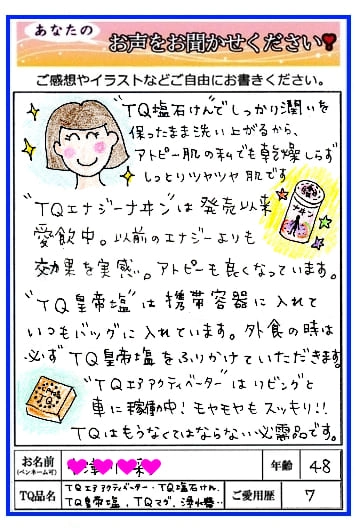 あなたの
お声をお聞かせください
ご感想やイラストなどご自由にお書きください。
"TQ塩石けん"でしっかり潤いを
保ったまま洗い上がるから、
アトピー肌の私でも乾燥しらず
しっとりツヤツヤ肌です
"TQエナジーナヰン"は発売以来
愛飲中。以前のエナジーよりも
効果を実感。アトピーも良くなっています。
"TQ皇帝塩"は携帯容器に入れて
いつもバッグに入れています。外食の時は
必ずTQ皇帝塩をふりかけていただきます。
"TQエアアクティベーター"はリビングと
車に稼働中!モヤモヤもスッキリ!!
TQはもうなくてはならない必需品です。
お名前
(ペンネーム可)
年齢
48
TQ品名
TQエアアクティベーター・TQ塩石けん、
TQ皇帝塩、TQマグ、浄水器…
ご愛用歴
7